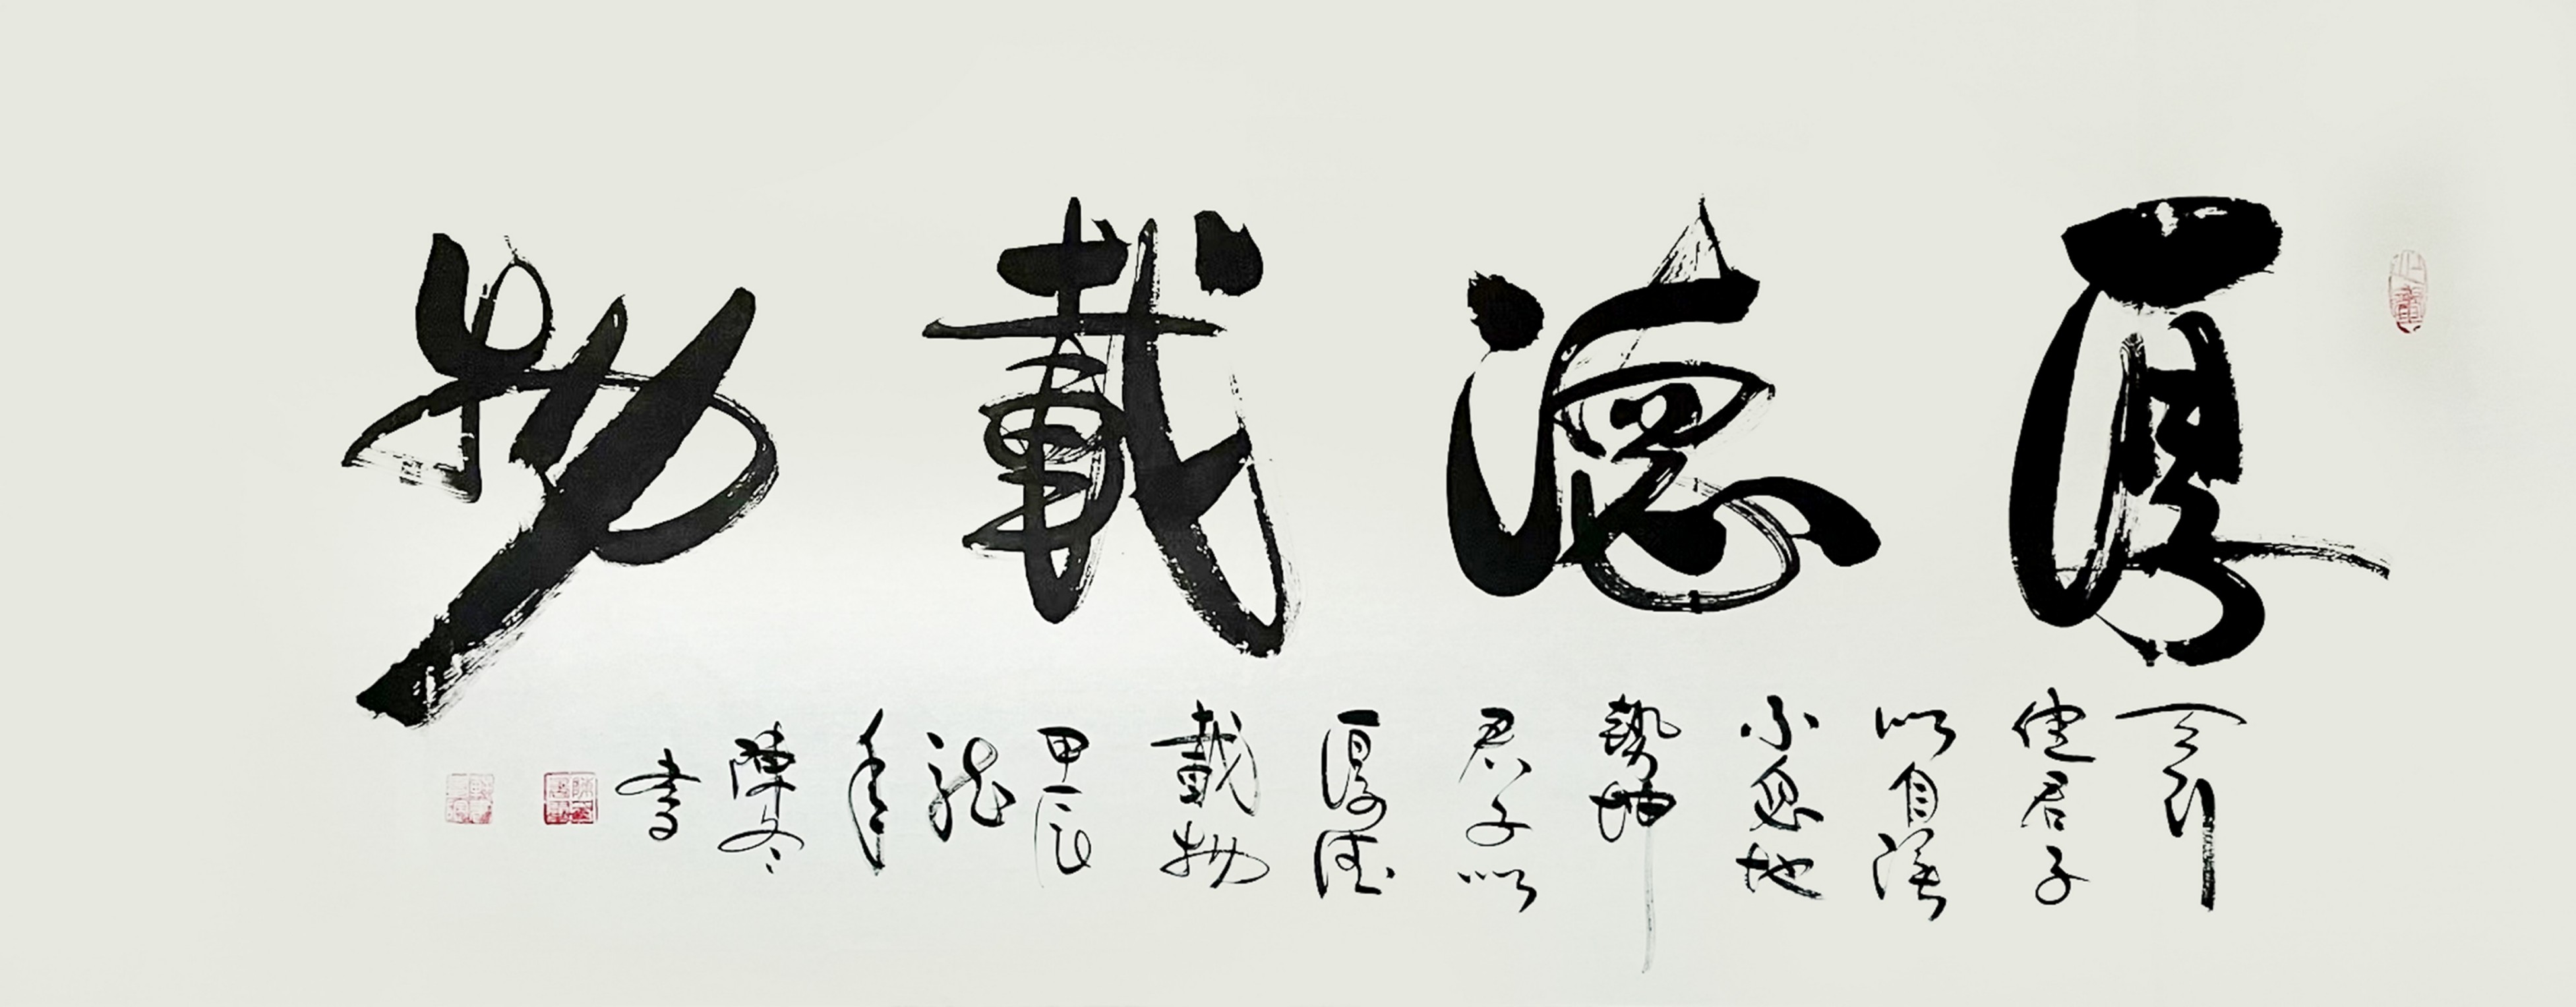 厚德載物
天行
健君子
以自強
不息地
勢坤
君子以
厚德
載物
甲辰
龍
年
陳冬
書